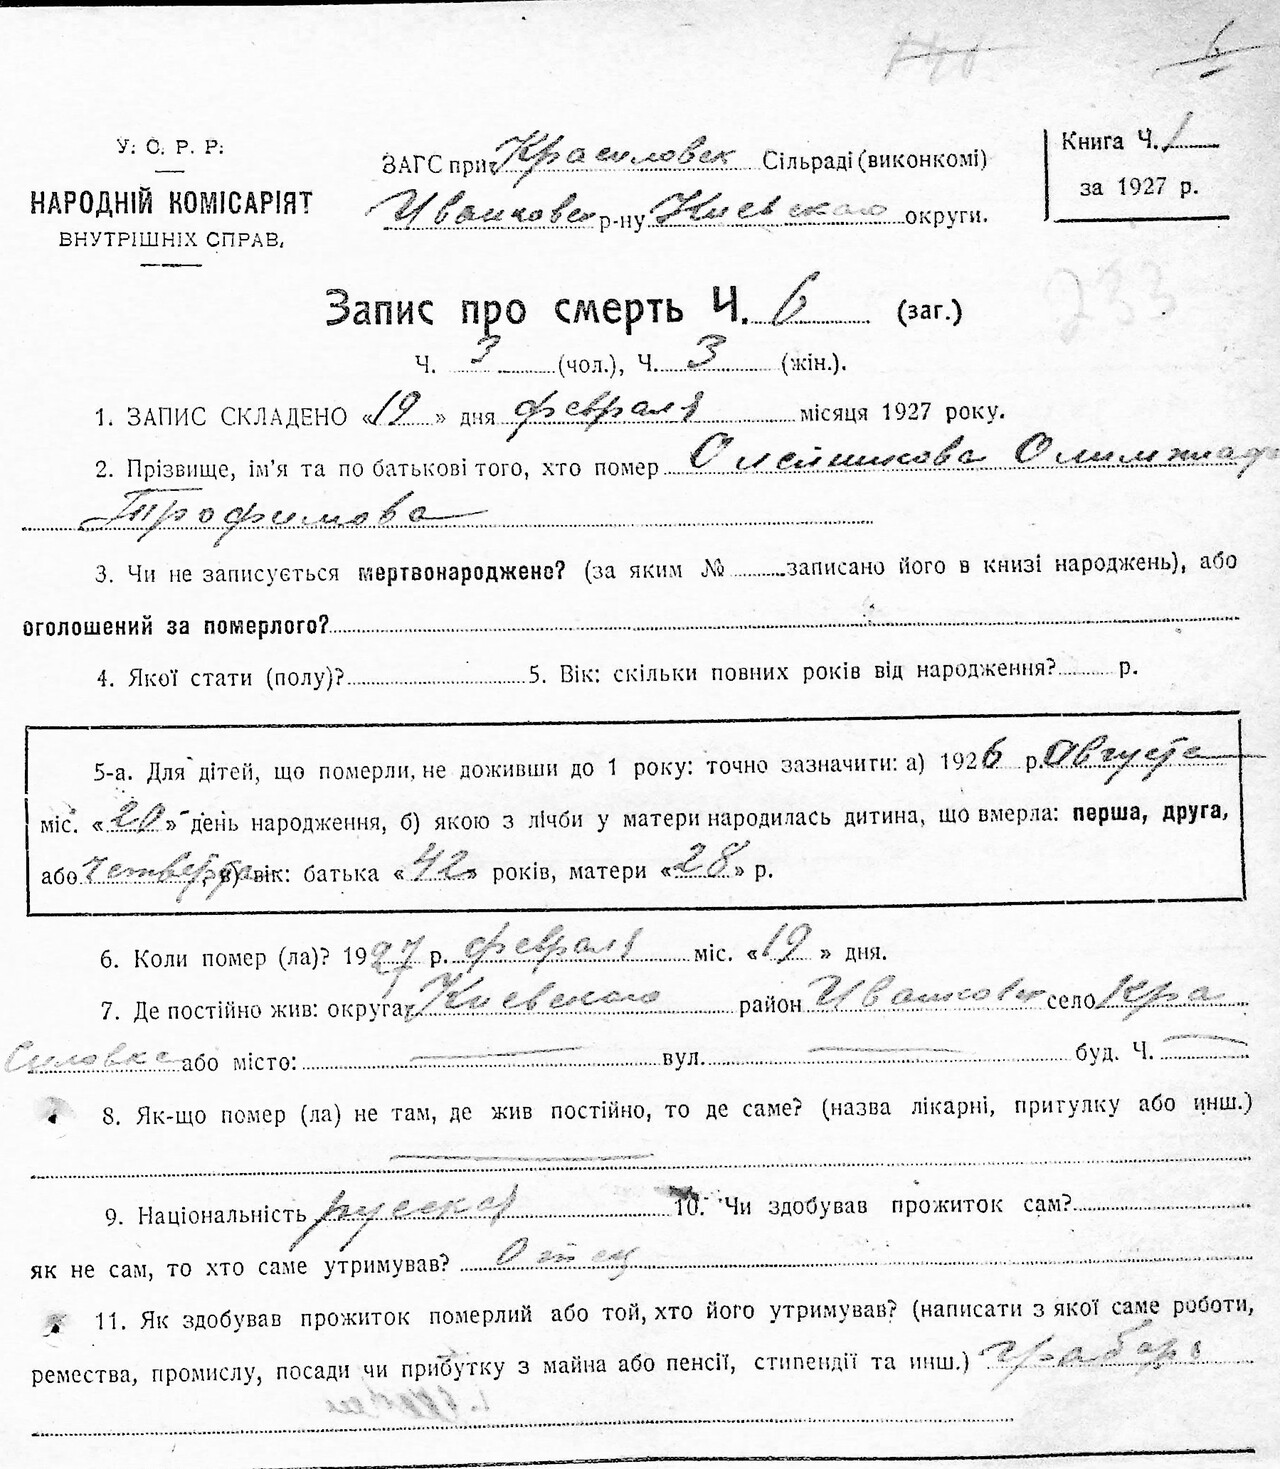 6
У. С. Р. Р.
НАРОДНІЙ КОМІСАРІЯТ
ВНУТРІШНІХ СПРАВ.
ЗАГС при Красиловск Сільраді (виконкомі)
Иванковск р-ну Киевского округи.
Книга Ч. 1
за 1927 р.
233
Запис про смерть Ч. 6 (заг.)
Ч. 3 (чол.), Ч. 3 (жін.).
1. ЗАПИС СКЛАДЕНО «19» дня февраля місяця 1927 року.
2. Прізвище, ім'я та по батькові того, хто помер Олейникова Олимпиада
Трофимова
3. Чи не записується мертвонароджене? (за яким № записано його в книзі народжень), або
оголошений за померлого?
4. Якої стати (полу)? 5. Вік: скільки повних років від народження? р.
5-а. Для дітей, що померли, не доживши до 1 року: точно зазначити: а) 1926 р. Августа
міс. «20» день народження, б) якою з лічби у матери народилась дитина, що вмерла: перша, друга,
або четверта, в) вік: батька «42» років, матери «28» р.
6. Коли помер (ла)? 1927 р. февраля міс. «19» дня.
7. Де постійно жив: округа Киевского район Иванковск село Кра
силовка або місто: вул. буд. Ч.
8. Як-що помер (ла) не там, де жив постійно, то де саме? (назва лікарні, притулку або инш.)
9. Національність русская 10. Чи здобував прожиток сам?
як не сам, то хто саме утримував? Отец
11. Як здобував прожиток померлий або той, хто його утримував? (написати з якої саме роботи,
ремества, промислу, посади чи прибутку з майна або пенсії, стипендії та инш.) грабарь